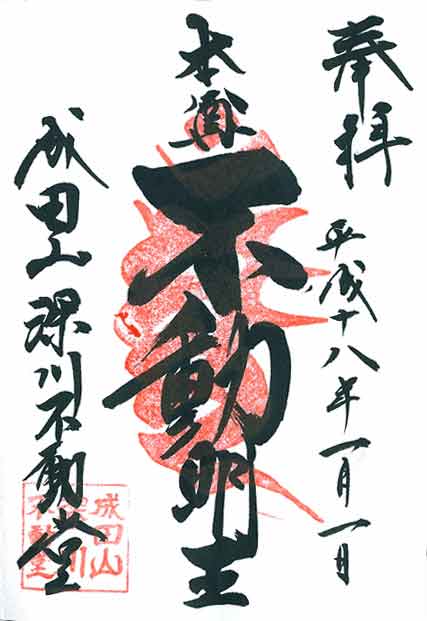 奉拝
平成十八年一月一日
本尊
不動明王
成田山深川不動堂
成田山
深川
不動堂